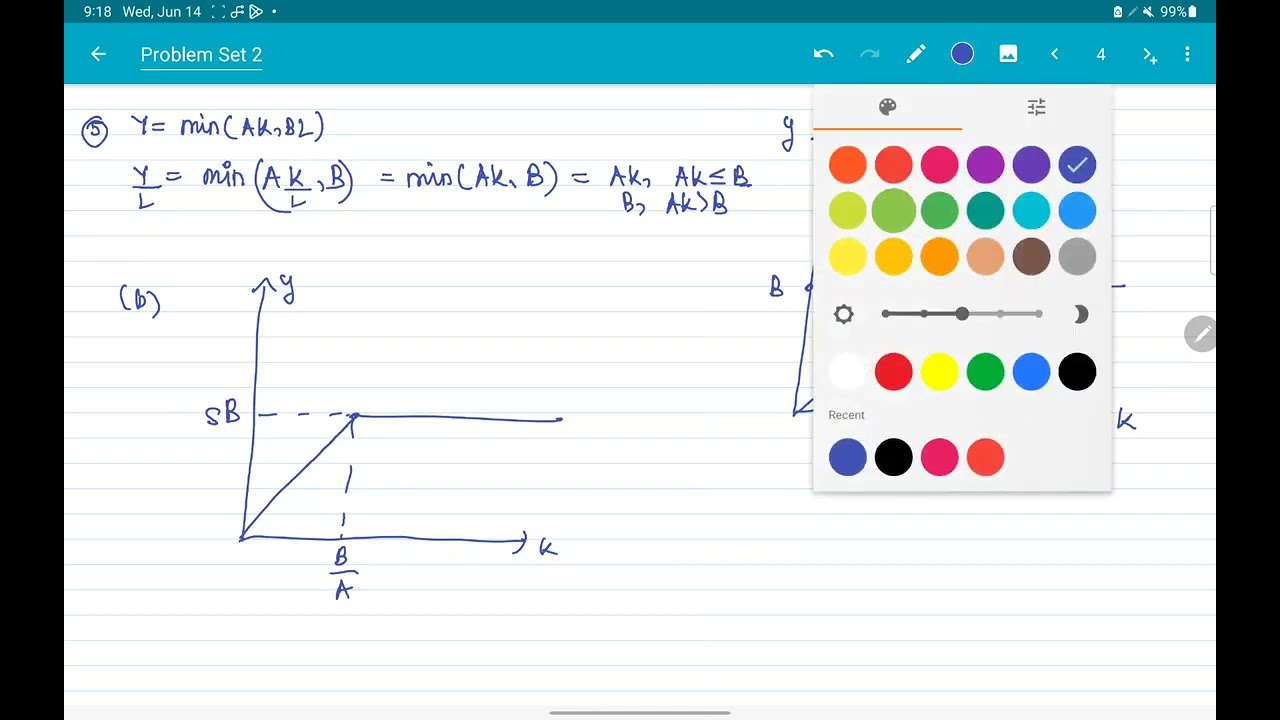 9:18 Wed, Jun 14
99%
Problem Set 2
4
5 Y = min(AK, BL)
Y/L = min(A K/L, B) = min(AK, B) = AK, AK ≤ B
B, AK > B
(b)
y
SB
B/A
K
y
B
K
Recent